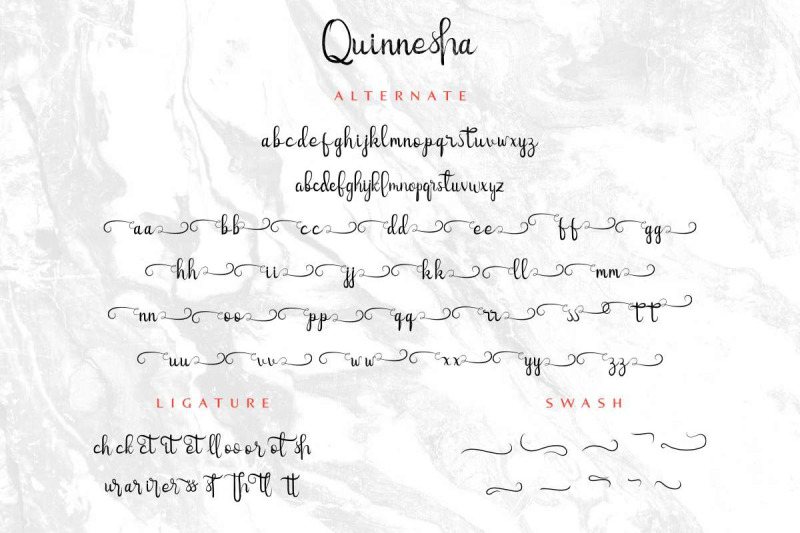 Quinnesha
ALTERNATE
abcdefghijklmnopqrstuvwxyz
abcdefghijklmnopqrstuvwxyz
aa bb cc dd ee ff gg
hh ii jj kk ll mm
nn oo pp qq rr ss tt
uu vv ww xx yy zz
LIGATURE
SWASH
ch ck ct it et ll oo or ot sh
ur ar ir er ss st Th tl tt